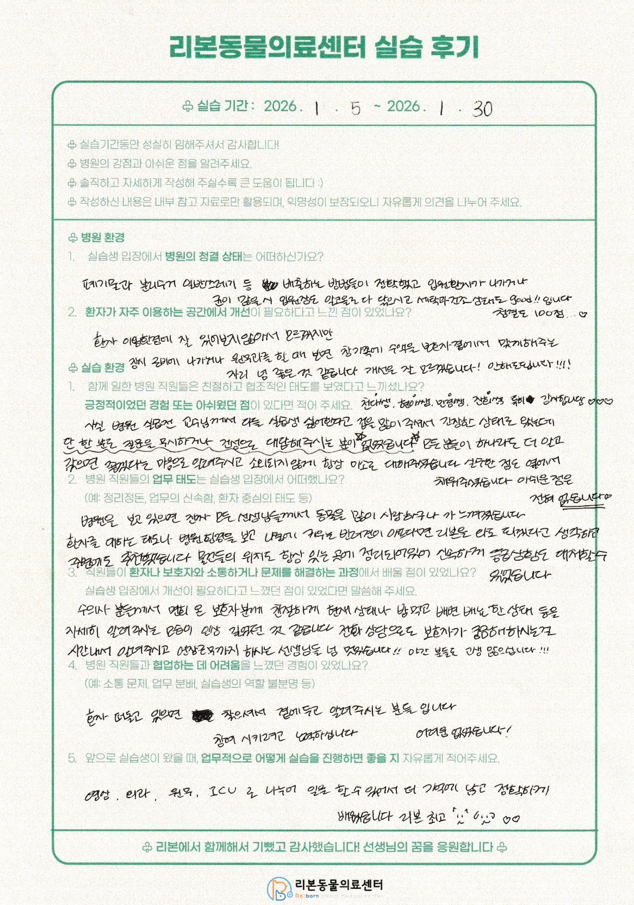 리본동물의료센터 실습 후기
실습 기간 : 2026. 1 . 5 ~ 2026. 1 . 30
실습기간동안 성실히 임해주셔서 감사합니다!
병원의 강점과 아쉬운 점을 알려주세요.
솔직하고 자세하게 작성해 주실수록 큰 도움이 됩니다 :)
작성하신 내용은 내부 참고 자료로만 활용되며, 익명성이 보장되오니 자유롭게 의견을 나누어 주세요.
병원 환경
1. 실습생 입장에서 병원의 청결 상태는 어떠하신가요?
폐기물과 분리수거 일반쓰레기 등 배출하는 방법들이 정확했고 입원환자가 나가거나
균이 많을 시 입원장도 알코올로 다 닦으시고 세탁과 건조 상태도 Good!! 입니다
2. 환자가 자주 이용하는 공간에서 개선이 필요하다고 느낀 점이 있었나요?
청결도 100점...♡
환자 이용환경에 잘 있어보지 않아서 모르겠지만
잠시 로비에 나가거나 원무과를 할 때 보면 한쪽에 수액을 보호자 옆에서 맞게 해주는
자리 넘 좋은 것 같습니다! 개선은 잘 모르겠습니다! 안해도 됩니다!!!
실습 환경
1. 함께 일한 병원 직원들은 친절하고 협조적인 태도를 보였다고 느끼셨나요?
긍정적이었던 경험 또는 아쉬웠던 점이 있다면 적어 주세요. 감사합니다 ♡♡♡
사실 병원 실습전 교수님께서 다들 실습생 싫어한다고 겁을 많이 주셔서 긴장한 상태로 왔는데
단 한 분도 질문을 무시하거나 건성으로 대답해주시는 분이 없었습니다 모든 분들이 하나라도 더 알고
갔으면 좋겠다는 마음으로 알려주시고 소외되지 않게 항상 미소로 대해주셨습니다 실수한 점도 옆에서
2. 병원 직원들의 업무 태도는 실습생 입장에서 어땠나요? 채워주셨습니다 아쉬운 점은
(예: 정리정돈, 업무의 신속함, 환자 중심의 태도 등) 전혀 없습니다♡
병원을 보고 있으면 진짜 모든 선생님들께서 동물을 많이 사랑하구나 가 느껴졌습니다
환자를 대하는 태도나 병원 환경을 보고 나중에 키우는 반려견이 아프다면 리본을 와도 되겠다고 생각하며
추천했습니다 물건들의 위치도 항상 있는 곳에 정리되어있어 신속하게 응급상황도 대처할 수
3. 직원들이 환자나 보호자와 소통하거나 문제를 해결하는 과정에서 배울 점이 있었나요? 있었습니다
실습생 입장에서 개선이 필요하다고 느꼈던 점이 있었다면 말씀해 주세요.
수의사 분들께서 면회 온 보호자분께 친절하게 현재 상태나 밥 먹고 배변 배뇨 한 상태 등을
자세히 알려주시는 모습이 인상 깊었던 것 같습니다 전화 상담으로도 보호자가 궁금해 하시는걸
시간내서 알려주시고 영상전송까지 하시는 선생님들 넘 멋있습니다!! 야간 분들도 고생 많으십니다!!!
4. 병원 직원들과 협업하는 데 어려움을 느꼈던 경험이 있었나요?
(예: 소통 문제, 업무 분배, 실습생의 역할 불분명 등)
환자 떠돌고 있으면 찾으셔서 옆에 두고 알려주시는 분들 입니다
참여 시키려고 노력하십니다 어려움 없었습니다!
5. 앞으로 실습생이 왔을 때, 업무적으로 어떻게 실습을 진행하면 좋을 지 자유롭게 적어주세요.
영상, 외과, 원무, ICU 로 나누어 일을 할 수 있어서 더 기억에 남고 정확하게
배웠습니다 리본 최고 ♡♡
리본에서 함께해서 기뻤고 감사했습니다! 선생님의 꿈을 응원합니다
리본동물의료센터